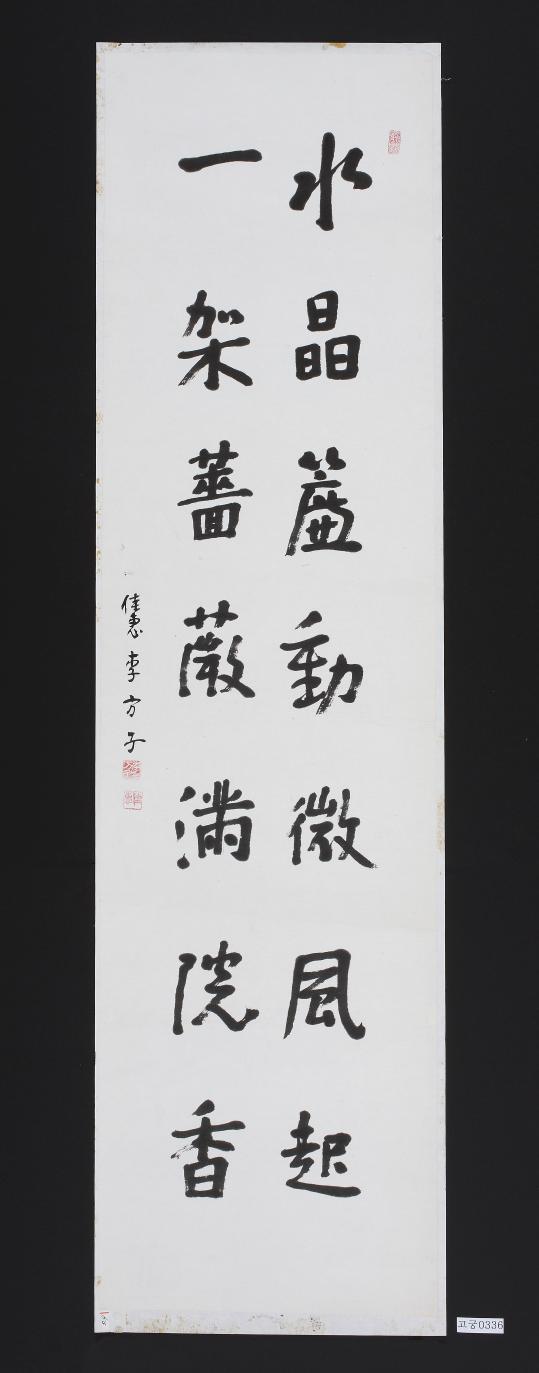 水晶簾動微風起
一架薔薇滿院香
佳惠 李方子
고궁0336